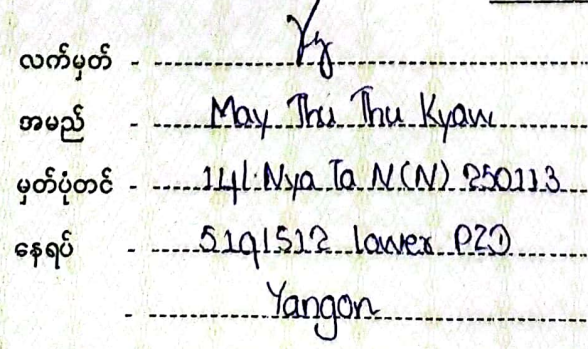 လက်မှတ် -
အမည် - May Thu Thu Kyaw
မှတ်ပုံတင် - 14/ Nya Ta N (N) 250113
နေရပ် - 519/512 lower PZD
- Yangon